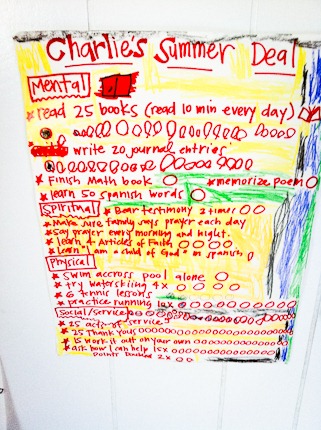 Charlie's Summer Deal
Mental
read 25 books (read 10 min every day)
write 20 journal entries
Finish Math book memorize poem
learn 50 spanish words
Spiritual Bear testimony 2 times
Make sure family says prayer each day
say prayer every morning and night.
learn 4 Articles of Faith
learn "I am a child of God" in spanish
Physical
swim accross pool alone
try waterskiing 4x
6 tennis lessons
practice running 10x
Social/service
25 acts of service
25 Thank yous
15 work it out on your own
ask how I can help 15x
Points Doubled 2x